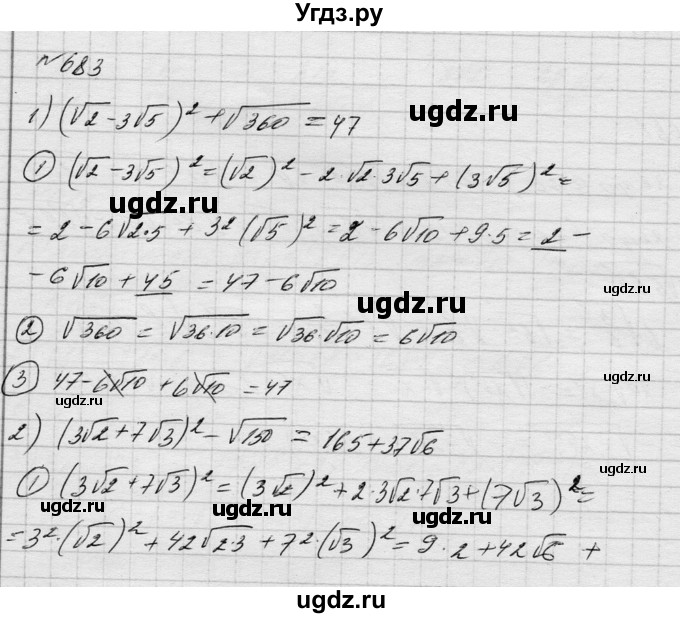 Угдз.ру
№683
1) (√2-3√5)² + √360 = 47
ugdz.ru
① (√2-3√5)² = (√2)² - 2·√2·3√5 + (3√5)² =
ugdz.ru
= 2 - 6√2·5 + 3²(√5)² = 2 - 6√10 + 9·5 = 2 -
ugdz.ru
- 6√10 + 45 = 47 - 6√10
ugdz.ru
② √360 = √36·10 = √36·√10 = 6√10
③ 47 - 6√10 + 6√10 = 47
ugdz.ru ugdz.ru
2) (3√2+7√3)² - √150 = 165 + 37√6
ugdz.ru
① (3√2+7√3)² = (3√2)² + 2·3√2·7√3 + (7√3)² =
ugdz.ru ugdz.ru ugdz.ru
= 3²·(√2)² + 42√2·3 + 7²·(√3)² = 9·2 + 42√6 +
ugdz.ru